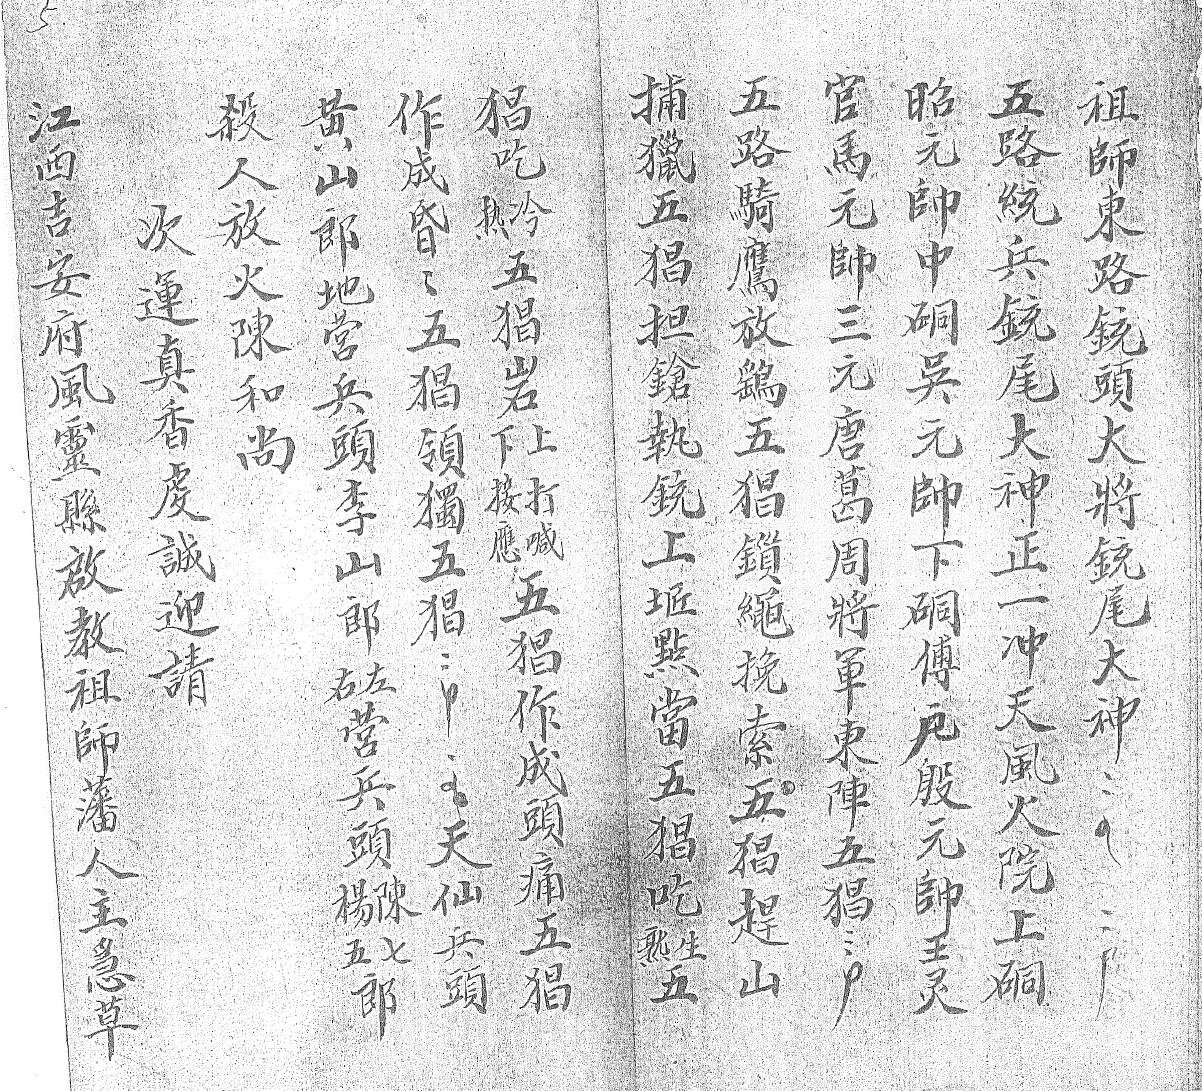 祖師東路銃頭大將銃尾大神
五路統兵銃尾大神正一冲天風火院上硐
昭元帥中硐吳元帥下硐傅元殷元帥王灵
官馬元帥三元唐葛周將軍東陣五猖
五路騎鷹放鷂五猖鎖繩挽索五猖趕山
捕獵五猖担鎗執銃上坵點當五猖吃生熟五
猖吃冷热五猖岩上下打喊接應五猖作成頭痛五猖
作成昏〻五猖領獨五猖天仙兵頭
黃山郎地营兵頭李山郎左右营兵頭陳七楊五郎
殺人放火陳和尚
次運真香虔誠迎請
江西吉安府風靈縣啟教祖師藩人主急草
5